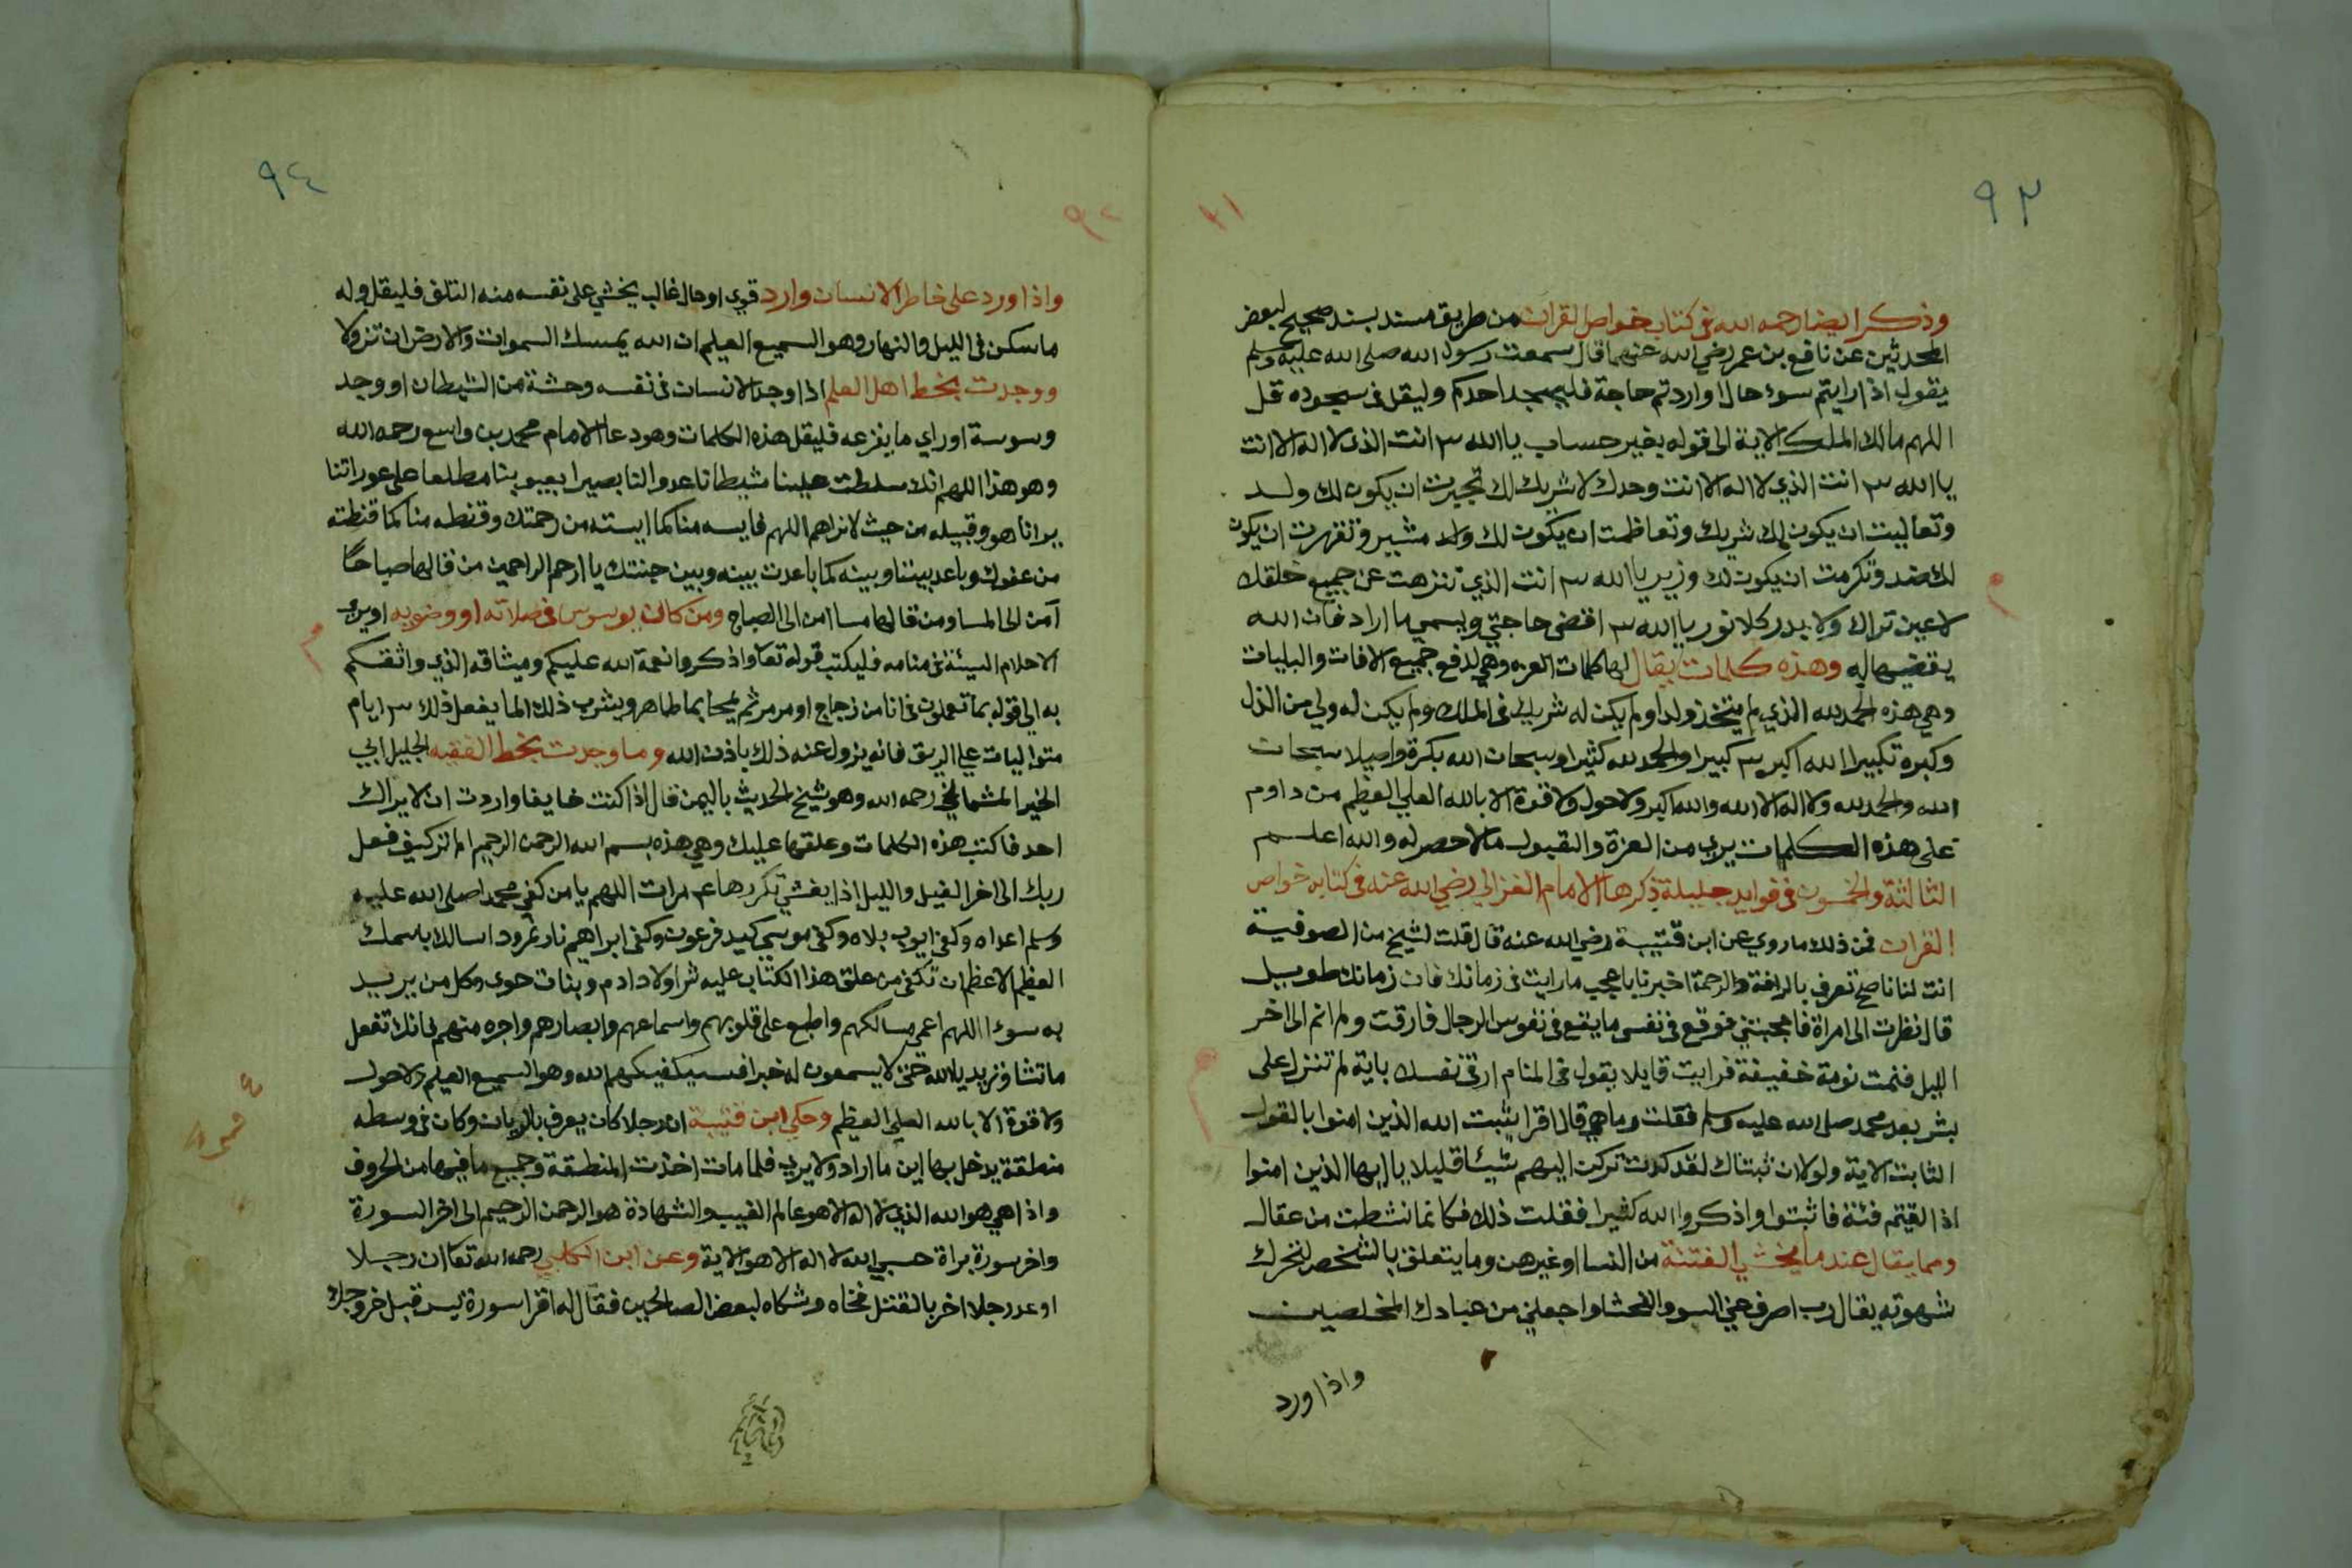 ٩٣
وذكر ايضا رحمه الله في كتاب خواص القران من طريق مسند بسند صحيح لبعض
المحدثين عن نافع بن عمر رضي الله عنهما قال سمعت رسول الله صلى الله عليه وسلم
يقول اذا رايتم سوء حال او اردتم حاجة فليسجد احدكم وليقل في سجوده قل
اللهم مالك الملك الاية الى قوله بغير حساب يا الله ٣ انت الذي لا اله الا انت
يا الله ٣ انت الذي لا اله الا انت وحدك لا شريك لك تجبرت ان يكون لك ولد
وتعاليت ان يكون لك شريك وتعاظمت ان يكون لك ولد مشير وتقهرت ان يكون
لك ضد وتكرمت ان يكون لك وزير يا الله ٣ انت الذي تنزهت عن جميع خلقك
لا عين تراك ولا يدركك نور يا الله ٣ اقضي حاجتي ويسمي ما اراد فان الله
يقضيها له وهذه كلمات يقال لها كلمات العزه وهي لدفع جميع الافات والبليات
وهي هذه الحمد لله الذي لم يتخذ ولدا ولم يكن له شريك في الملك ولم يكن له ولي من الذل
وكبره تكبيرا الله اكبر ٣ كبيرا والحمد لله كثيرا وسبحان الله بكرة واصيلا سبحان
الله والحمد لله ولا اله الا الله والله اكبر ولا حول ولا قوة الا بالله العلي العظيم من داوم
على هذه الكلمات يرى من العزة والقبول ما لا حصر له والله اعلم
الثالثة والخمسون في فوايد جليلة ذكرها الامام الغزالي رضي الله عنه في كتابه خواص
القران فمن ذلك ما روي عن ابن قتيبة رضي الله عنه قال قلت لشيخ من الصوفية
انت لنا ناصح تعرف بالرافة والرحمة اخبرنا باعجب ما رايت في زمانك فان زمانك طويل
قال نظرت الى امراة فاعجبتني فوقع في نفسي ما يقع في نفوس الرجال فارقت ولم انم الى اخر
الليل فنمت نومة خفيفة فرايت قايلا يقول في المنام ارق نفسك باية لم تنزل على
بشر بعد محمد صلى الله عليه وسلم فقلت وما هي قال اقرا يثبت الله الذين امنوا بالقول
الثابت الاية ولولا ان ثبتناك لقد كدت تركن اليهم شيئا قليلا يا ايها الذين امنوا
اذا لقيتم فئة فاثبتوا واذكروا الله كثيرا فقلت ذلك فكانما نشطت من عقال
ومما يقال عند ما يخشي الفتنة من النسا او غيرهن وما يتعلق بالشخص لتحرك
شهوته يقال رب اصرف عني السوء والفحشا واجعلني من عبادك المخلصين
واذا ورد
٩٤
٩٢
واذا ورد على خاطر الانسان وارد قوي او حال غالب يخشي على نفسه منه التلف فليقل وله
ما سكن في الليل والنهار وهو السميع العليم ان الله يمسك السموات والارض ان تزولا
ووجدت بخط اهل العلم اذا وجد الانسان في نفسه وحشة من الشيطان او وجد
وسوسة او راي ما يفزعه فليقل هذه الكلمات وهو دعا الامام محمد بن واسع رحمه الله
وهو هذا اللهم انك سلطت علينا شيطانا عدوا لنا بصيرا بعيوبنا مطلعا على عوراتنا
يرانا هو وقبيله من حيث لا نراهم اللهم فايسه منا كما ايسته من رحمتك وقنطه منا كما قنطته
من عفوك وباعد بيننا وبينه كما باعدت بينه وبين جنتك يا ارحم الراحمين من قالها صباحا
آمن الى المسا ومن قالها مسا امن الى الصباح ومن كان يوسوس في صلاته او وضويه او يرى
الاحلام السيئة في منامه فليكتب قوله تعا واذكروا نعمة الله عليكم وميثاقه الذي واثقكم
به الى قوله بما تعملون في انا من زجاج او مرمر ثم يمحا بما طاهر ويشرب ذلك الما يفعل ذلك ٣ ايام
متواليات على الريق فانه يزول عنه ذلك باذن الله ومما وجدت بخط الفقيه الجليل ابي
الخير الشماخي رحمه الله وهو شيخ الحديث باليمن قال اذا كنت خايفا واردت ان لا يراك
احد فاكتب هذه الكلمات وعلقها عليك وهي هذه بسم الله الرحمن الرحيم الم تر كيف فعل
ربك الى اخر الفيل والليل اذا يغشي تكررها ٤ مرات اللهم يا من كفي محمدا صلى الله عليه
وسلم اعداه وكفى ايوب بلاه وكفى موسي كيد فرعون وكفى ابراهيم نار نمرود اسالك باسمك
العظيم الاعظم ان تكفي من علق هذا الكتاب عليه شر اولاد ادم وبنات حوى وكل من يريد
به سوءا اللهم اعمي مسالكهم واطبع على قلوبهم واسماعهم وابصارهم واجره منهم فانك تفعل
ما تشا وتريد يا الله حتى لا يسمعون له خبرا فسيكفيكهم الله وهو السميع العليم ولا حول
ولا قوة الا بالله العلي العظيم وحكي ابن قتيبة ان رجلا كان يعرف بالريان وكان في وسطه
منطقة يدخل بها اين ما اراد ولا يرى فلما مات اخذت المنطقة وجميع ما فيها من الحروف
واذا هي هو الله الذي لا اله الا هو عالم الغيب والشهادة هو الرحمن الرحيم الى اخر السورة
واخر سورة براة حسبي الله لا اله الا هو الاية وعن ابن الكلبي رحمه الله تعا ان رجلا
اوعد رجلا اخر بالقتل فخاه وشكاه لبعض الصالحين فقال له اقرا سورة يس قبل خروجك